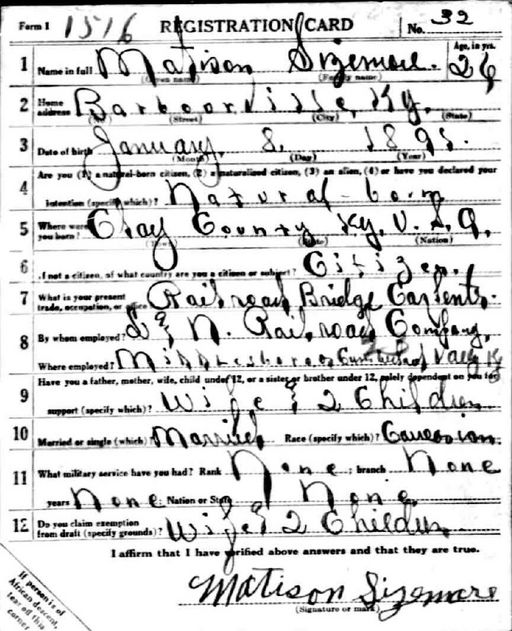 Form 1 1516 REGISTRATION CARD No. 32
1 Name in full Matison Sizemore. Age, in yrs. 26
(Given name) (Family name)
2 Home address Barboorville, Ky.
(No.) (Street) (City) (State)
3 Date of birth January. 8. 1891.
(Month) (Day) (Year)
Are you (1) a natural-born citizen, (2) a naturalized citizen, (3) an alien, (4) or have you declared your
4 intention (specify which)? Natural-born
5 Where were you born? Clay County Ky. U.S.A.
(Town) (State) (Nation)
6 If not a citizen, of what country are you a citizen or subject? Citizen.
7 What is your present trade, occupation, or office Railroad Bridge Carpenter.
8 By whom employed? L & N. Railroad Company,
Where employed? Middlesboro, Cumberland Valley Ky
Have you a father, mother, wife, child under 12, or a sister or brother under 12, solely dependent on you for
9 support (specify which)? Wife & 2 Children
10 Married or single (which)? Married Race (specify which)? Caucasian.
11 What military service have you had? Rank None ; branch None
years None ; Nation or State None
12 Do you claim exemption from draft (specify grounds)? Wife & 2 Children
I affirm that I have verified above answers and that they are true.
Matison Sizemore
(Signature or mark)
If person is of
African descent,
tear off this
corner